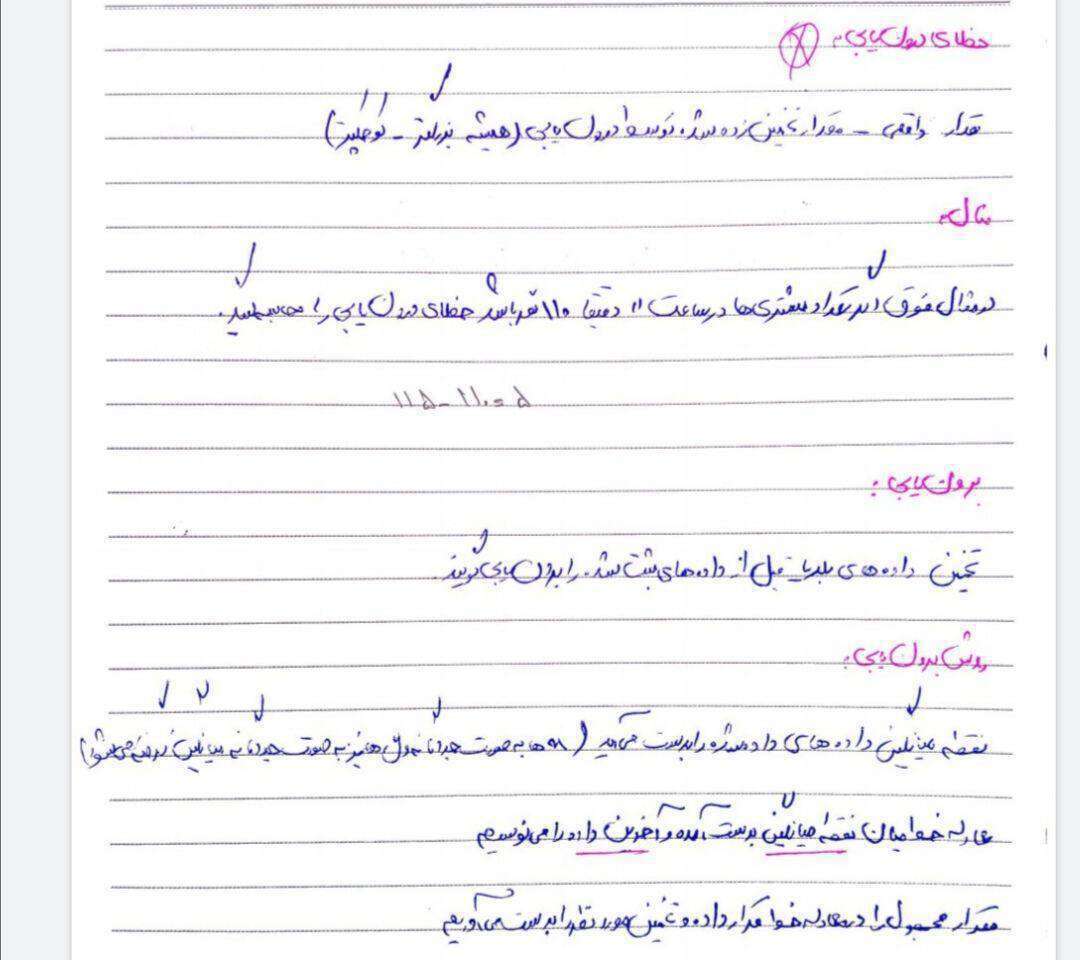 خطای درون یابی:
مقدار واقعی - مقدار تخمین زده شده توسط درون یابی (همیشه بزرگتر - کوچکتر)
مثال:
در مثال فوق اگر تعداد مشتری ها در ساعت ۱۱ دقیقا ۱۱۰ نفر باشد خطای درون یابی را محاسبه کنید.
۱۱۵-۱۱۰=۵
برون یابی:
تخمین داده های بعد یا قبل از داده های ثبت شده را برون یابی گویند.
روش برون یابی:
نقطه میانگین داده های داده شده را بدست می آوریم ( xها به صورت جداگانه و yها نیز به صورت جداگانه میانگین گرفته می شود)
معادله خط میان نقطه میانگین بدست آمده و آخرین داده را می نویسیم
مقدار مجهول را در معادله خط قرار داده و تخمین مورد نظر را بدست می آوریم